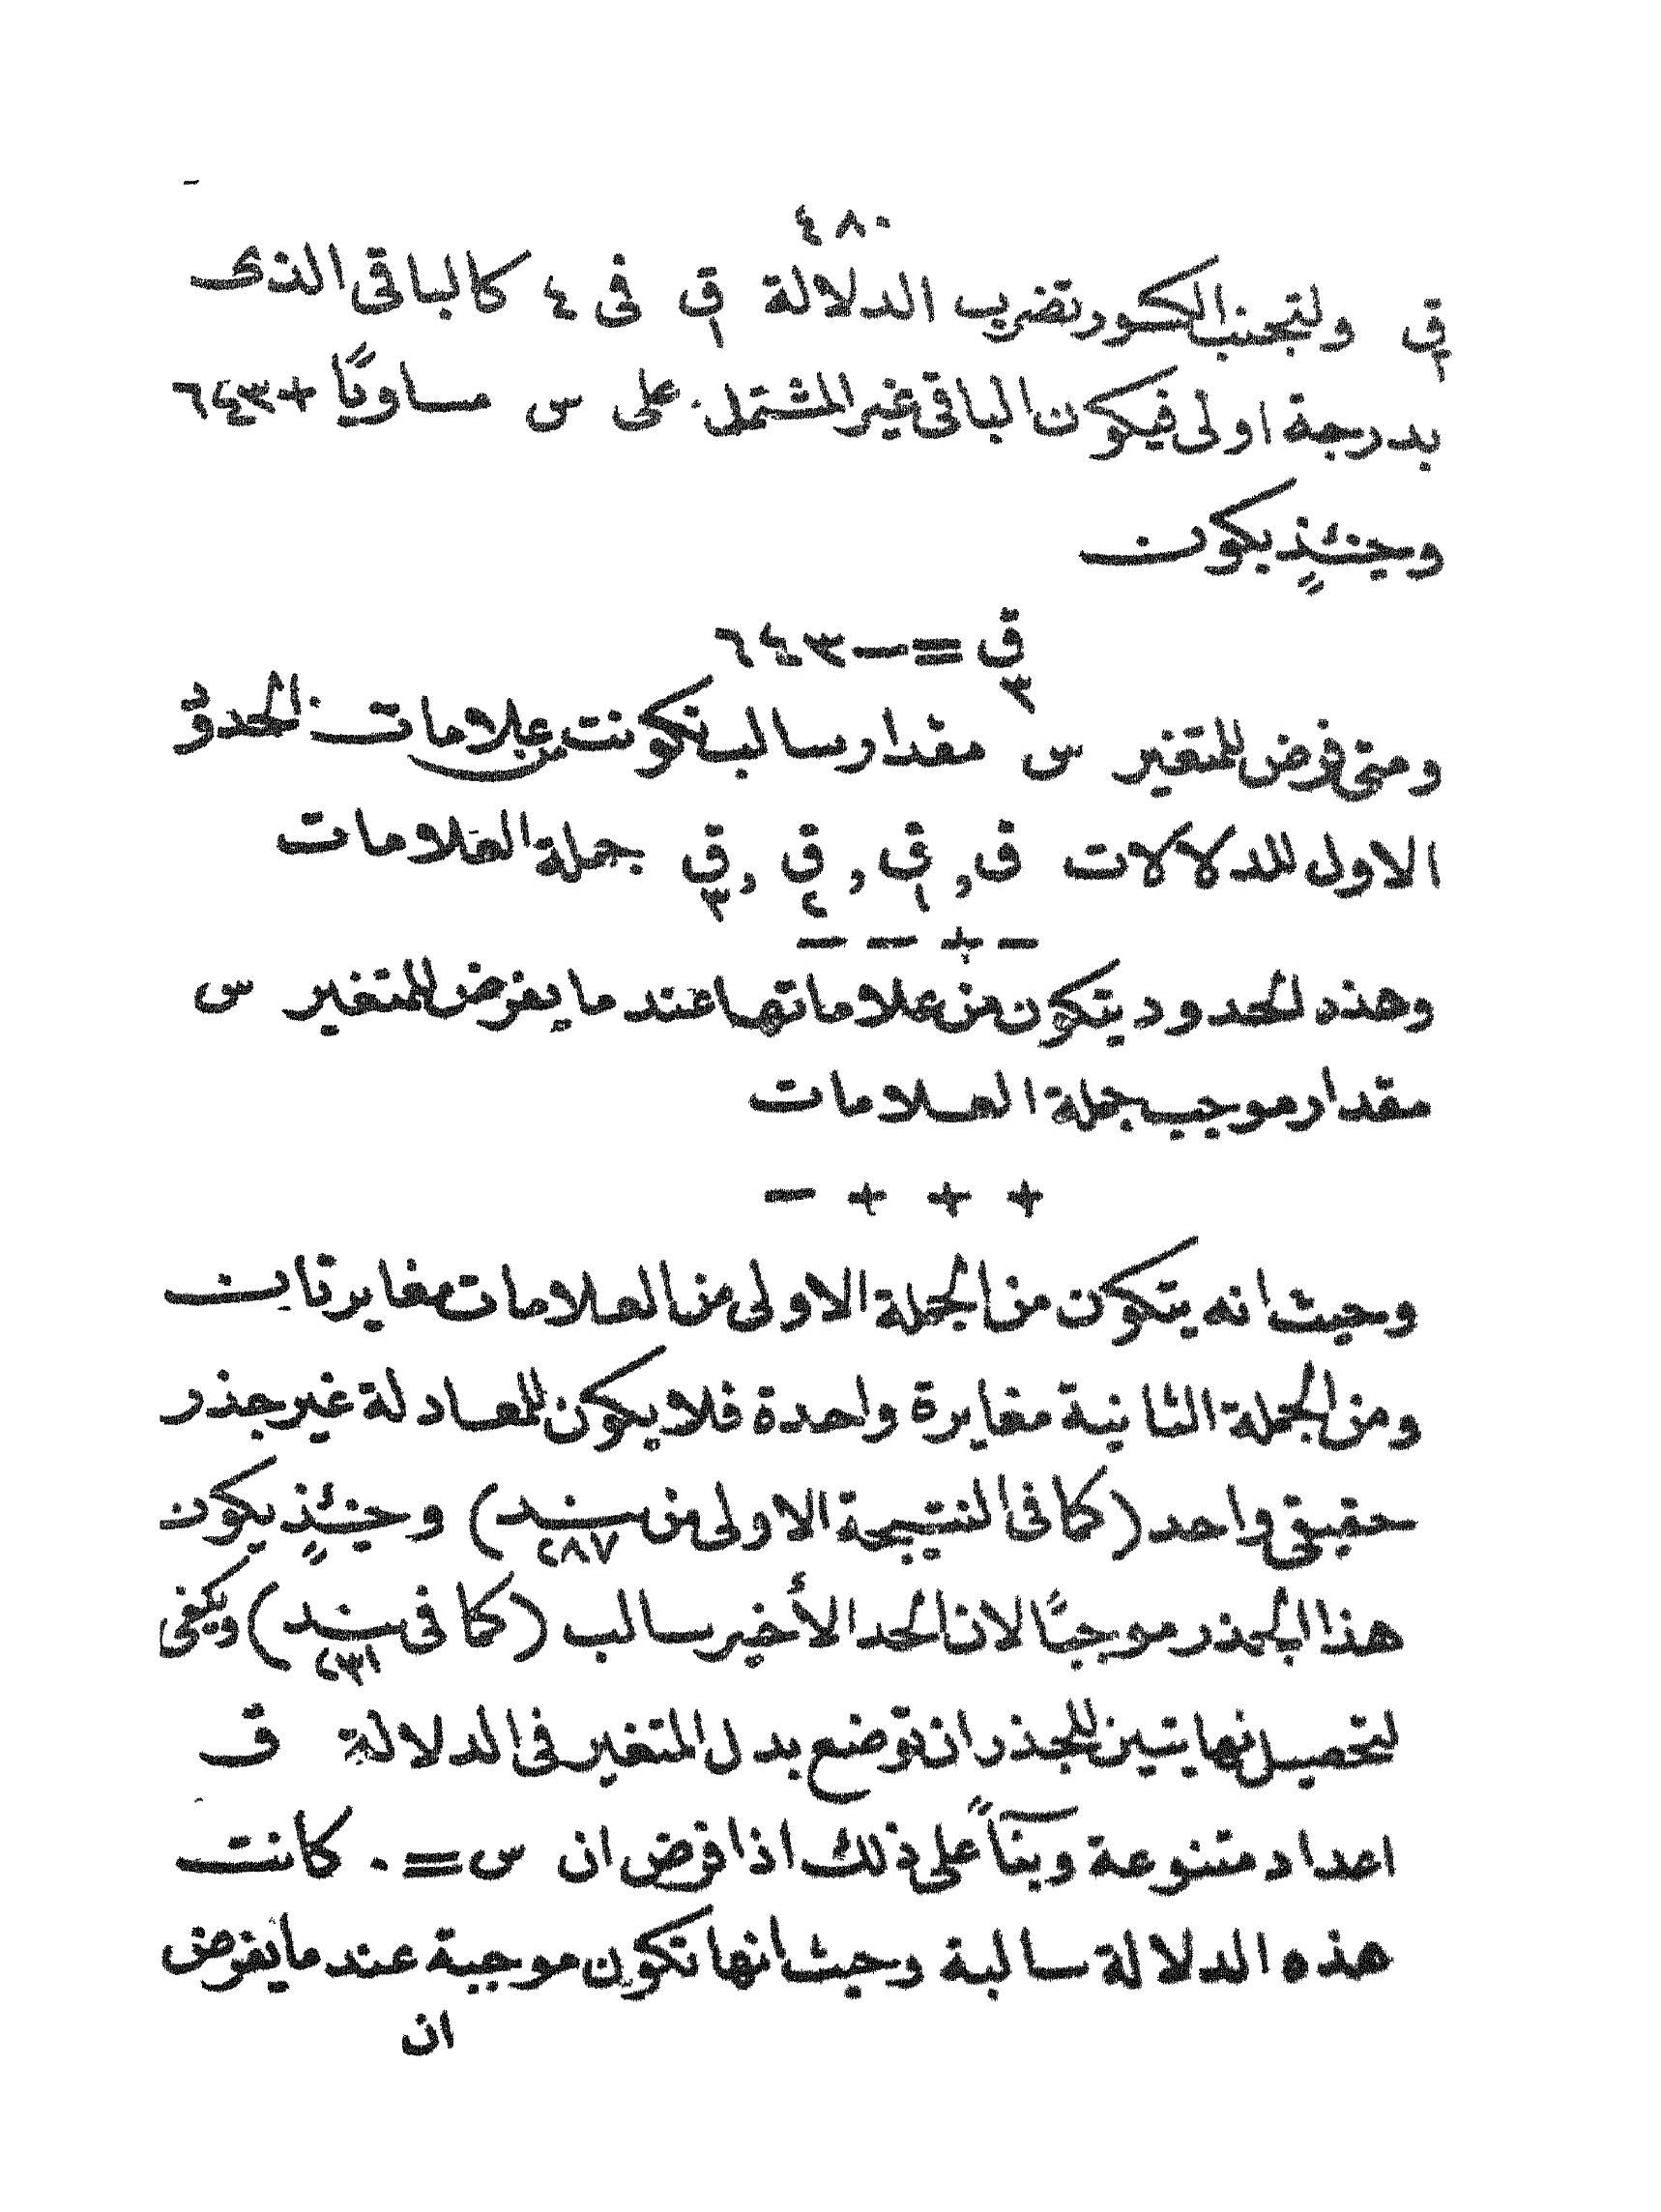 ٤٨٠
ق٢ ولتجنب الكسور تضرب الدلالة ق١ فى ٤ كالباقى الذى
بدرجة اولى فيكون الباقى غير المشتمل على س مساويًا +٦٤٣
وحينئذٍ يكون
ق٣ = −٦٤٣
ومتى فرض للمتغير س مقدار سالب تكونت من علامات الحدود
الاول للدلالات ق , ق١ , ق٢ , ق٣ جملة العلامات
− + − −
وهذه الحدود يتكون من علاماتها عند ما يفرض للمتغير س
مقدار موجب جملة العلامات
+ + + −
وحيث انه يتكون من الجملة الاولى من العلامات مغايرتان
ومن الجملة الثانية مغايرة واحدة فلا يكون للمعادلة غير جذر
حقيقى واحد (كما فى النتيجة الاولى من سند ٢٨٧) وحينئذٍ يكون
هذا الجذر موجبًا لان الحد الأخير سالب (كما فى سند ٢٣١) ويكفى
لتحصيل نهايتين للجذر ان توضع بدل المتغير فى الدلالة ق
اعداد متنوعة وبنآً على ذلك اذا فرض ان س = ٠ كانت
هذه الدلالة سالبة وحيث انها تكون موجبة عند ما يفرض
ان